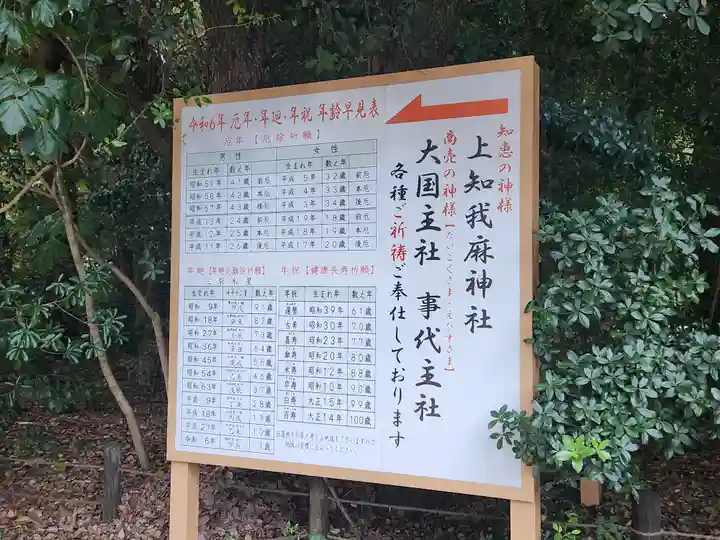 知恵の神様
上知我麻神社
商売の神様【だいこくさま・えびすさま】
大国主社 事代主社
各種ご祈祷ご奉仕しております
令和6年 厄年・年廻・年祝 年齢早見表
厄年【厄除祈願】
男性
生まれ年 数え年
昭和59年 41歳 前厄
昭和58年 42歳 本厄
昭和57年 43歳 後厄
平成13年 24歳 前厄
平成12年 25歳 本厄
平成11年 26歳 後厄
女性
生まれ年 数え年
平成5年 32歳 前厄
平成4年 33歳 本厄
平成3年 34歳 後厄
平成19年 18歳 前厄
平成18年 19歳 本厄
平成17年 20歳 後厄
生まれ年 数え年
昭和9年 91歳
昭和18年 82歳
昭和27年 73歳
昭和36年 64歳
昭和45年 55歳
昭和54年 46歳
昭和63年 37歳
平成9年 28歳
平成18年 19歳
平成27年 10歳
令和6年 1歳
年祝【健康長寿祈願】
年祝 生まれ年 数え年
還暦 昭和39年 61歳
古希 昭和30年 70歳
喜寿 昭和23年 77歳
傘寿 昭和20年 80歳
米寿 昭和12年 88歳
卒寿 昭和10年 90歳
白寿 大正15年 99歳
百寿 大正14年 100歳